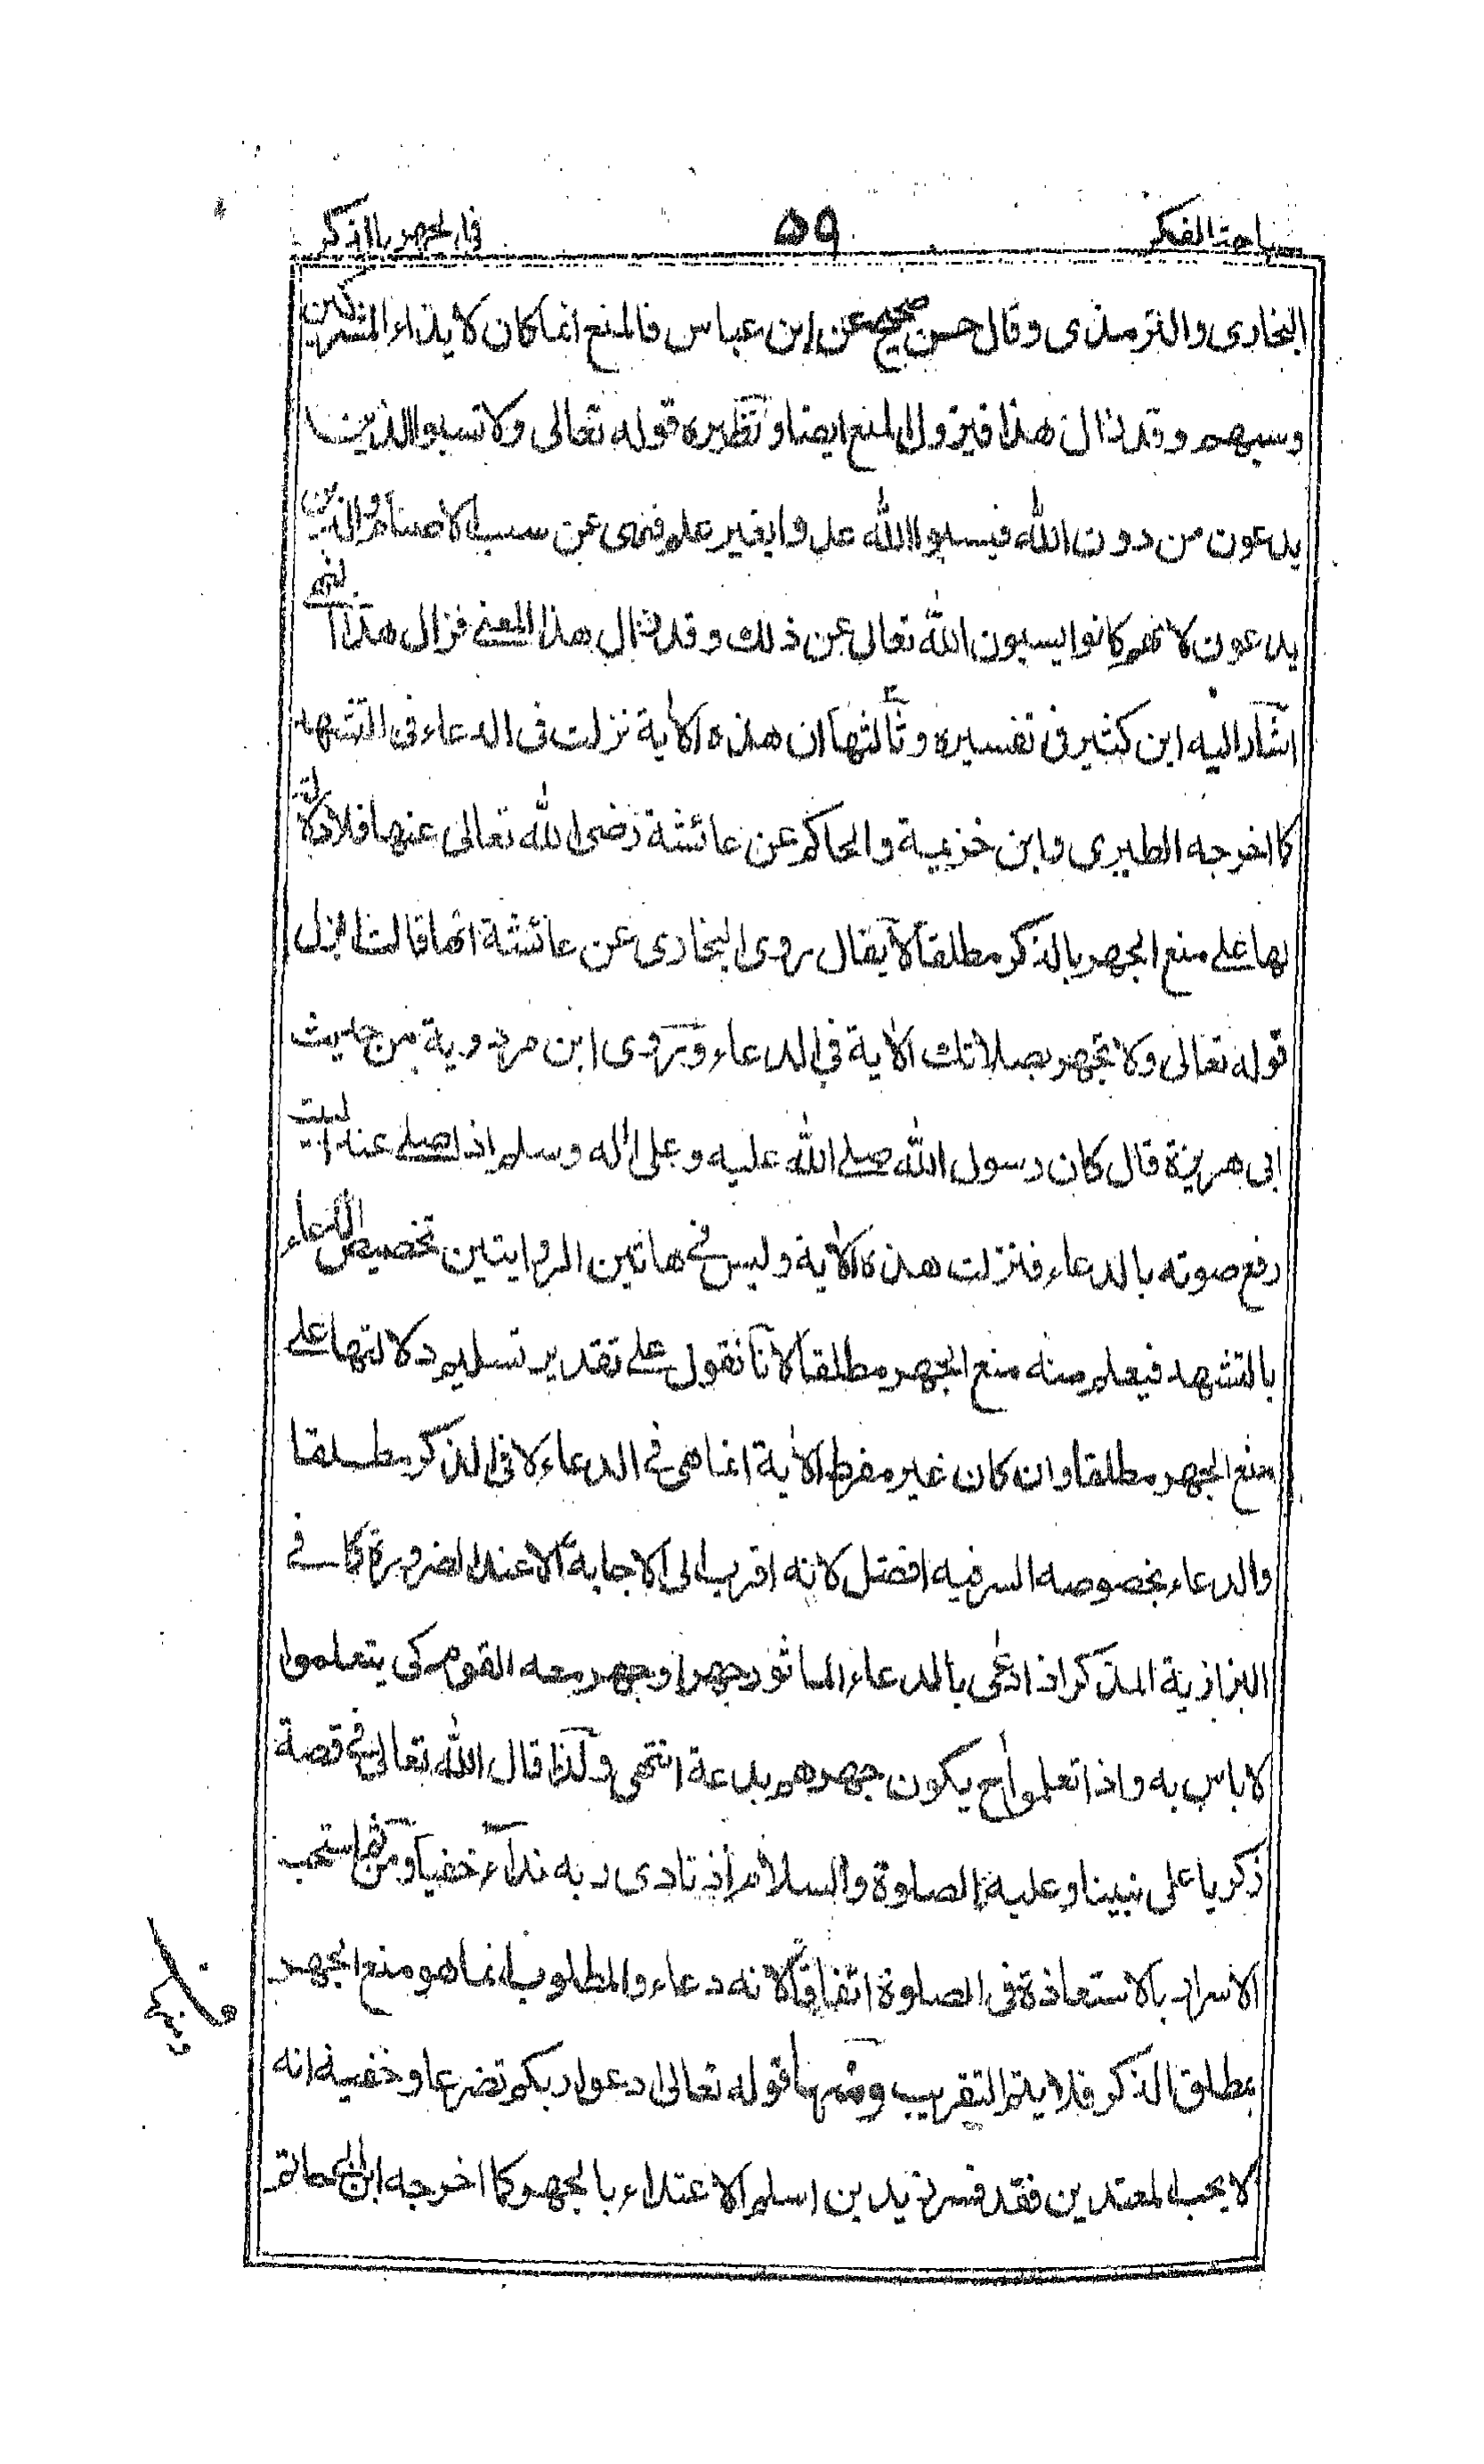 سباحة الفكر ٥٩ فى الجهر بالذكر
البخارى والترمذى وقال حسن صحيح عن ابن عباس فالمنع انما كان لايذاء المشركين
وسبهم وقد زال هذا فيزول المنع ايضا ونظيره قوله تعالى ولا تسبوا الذين
يدعون من دون الله فيسبوا الله عدوا بغير علم فنهى عن سب الاصنام والذين
يدعون لانهم كانوا يسبون الله تعالى عن ذلك وقد زال هذا المعنے فزال هذا النهى
اشار اليه ابن كثير فى تفسيره وثالثها ان هذه الاٰية نزلت فى الدعاء فى التشهد
كما اخرجه الطبرى وابن خزيمة والحاكم عن عائشة رضى الله تعالى عنها فلا دلالة
لها علے منع الجهر بالذكر مطلقا لا يقال روى البخارى عن عائشة انها قالت نزل
قوله تعالى ولا تجهر بصلاتك الاٰية فى الدعاء وروى ابن مردوية من حديث
ابى هريرة قال كان رسول الله صلے الله عليه وعلى اٰله وسلم اذا صلے عند البيت
رفع صوته بالدعاء فنزلت هذه الاٰية وليس فے هاتين الروايتين تخصيص الدعاء
بالتشهد فيعلم منه منع الجهر مطلقا لانا نقول علے تقدير تسليم دلالتها علے
منع الجهر مطلقا وان كان غير مفرط الاٰية انما هى فے الدعاء لا فى الذكر مطلقا
والدعاء بخصوصه السر فيه افضل لانه اقرب الى الاجابة الا عند الضرورة كما فے
البزازية المذكر اذا دعى بالدعاء الماثور جهرا وجهر معه القوم كى يتعلموا
لا باس به واذا تعلموا ح يكون جهرهم بدعة انتهى ولذا قال الله تعالى فے قصة
زكريا على نبينا وعليه الصلوة والسلام اذ نادى ربه نداء خفيا ومن ثم استحب
الاسرار بالاستعاذة فى الصلوة اتفاقا لانه دعاء والمطلوب انما هو منع الجهر
بمطلق الذكر فلا يتم التقريب ومنها قوله تعالى ادعوا ربكم تضرعا وخفية انه
لا يحب المعتدين فقد فسر زيد بن اسلم الاعتداء بالجهر كما اخرجه ابن ابى حاتم